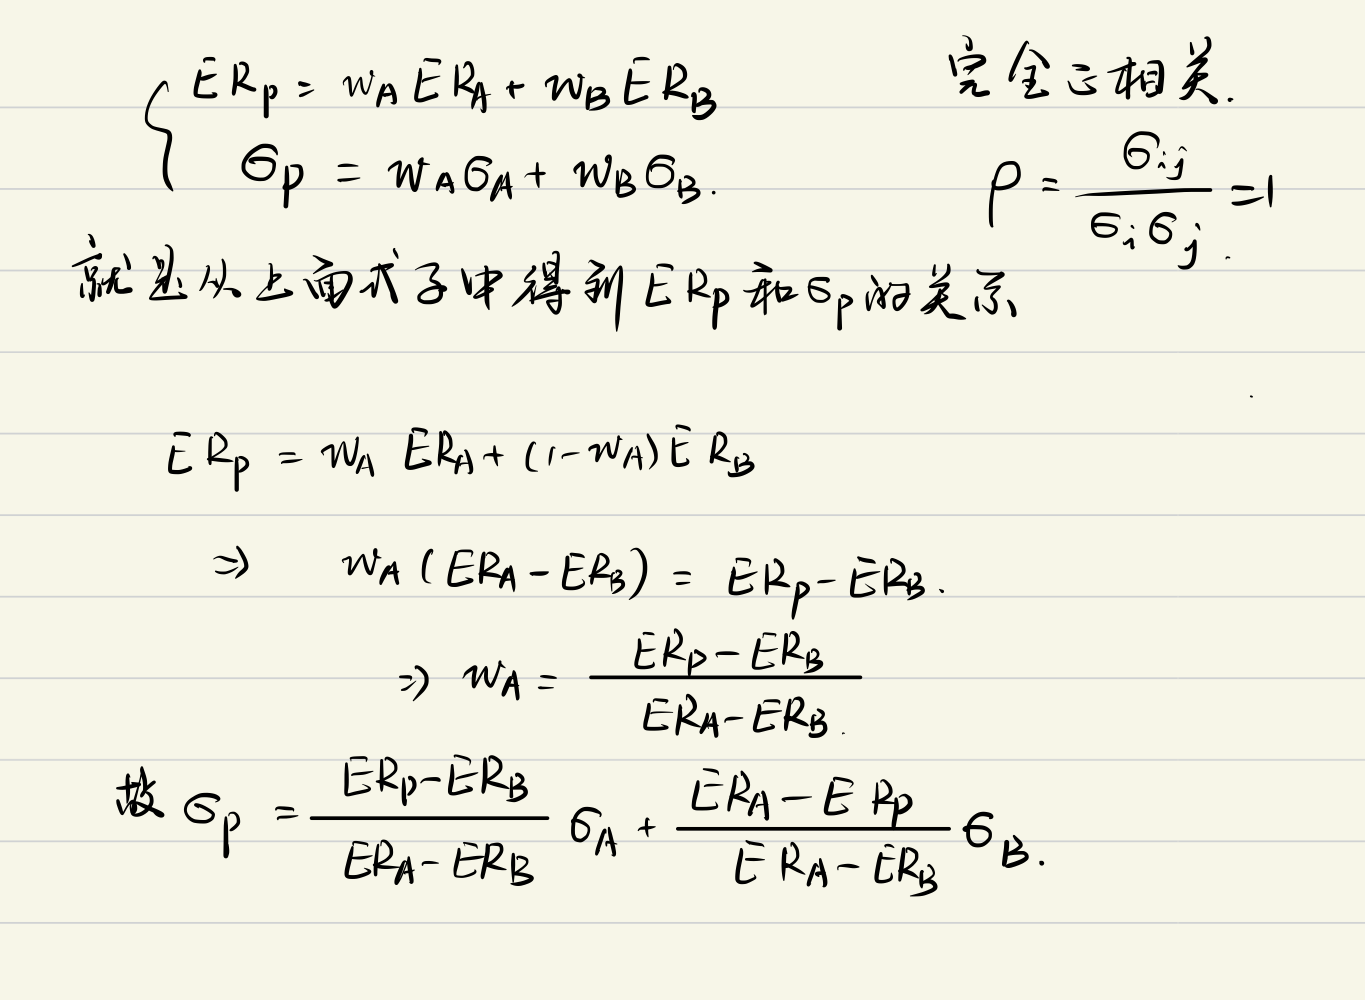 ERp = wA ERA + wB ERB
完全正相关.
σp = wAσA + wBσB.
ρ = σij / σiσj = 1
就是从上面式子中得到ERp和σp的关系
ERp = wA ERA + (1-wA) ERB
⇒ wA (ERA - ERB) = ERp - ERB.
⇒ wA = ERp - ERB / ERA - ERB.
故 σp = ERp - ERB / ERA - ERB σA + ERA - ERp / ERA - ERB σB.